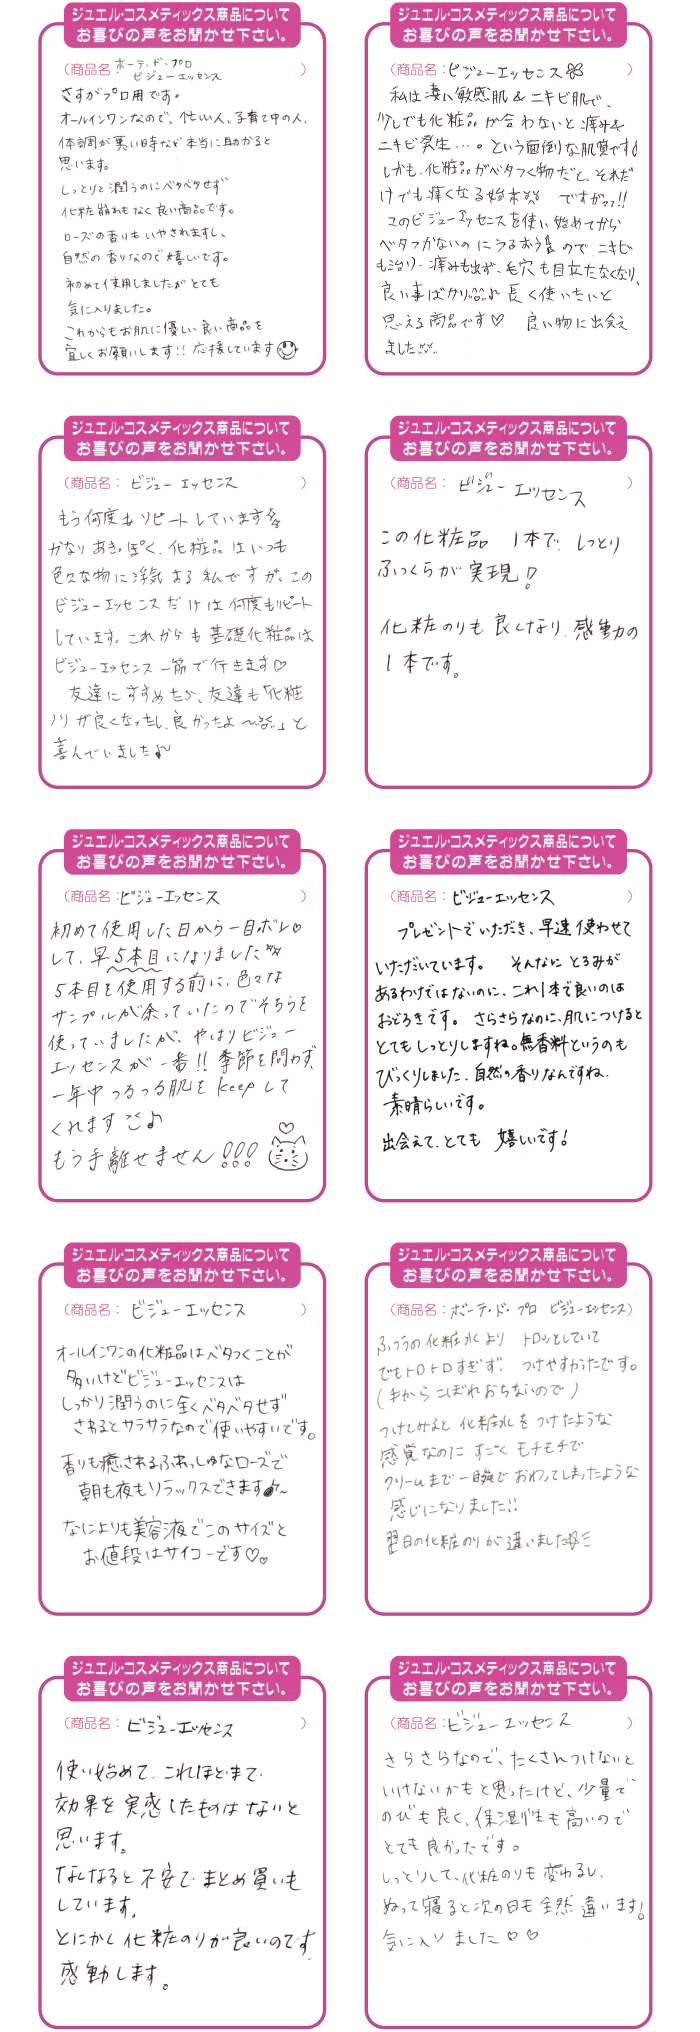 ジュエル・コスメティックス商品について
お喜びの声をお聞かせ下さい。
(商品名: ボーテ・ド・プロ
ビジューエッセンス )
さすがプロ用です。
オールインワンなので、忙しい人、子育て中の人、
体調が悪い時など本当に助かると
思います。
しっとりと潤うのにベタベタせず
化粧崩れもなく良い商品です。
ローズの香りもいやされますし、
自然の香りなので嬉しいです。
初めて使用しましたがとても
気に入りました。
これからもお肌に優しい良い商品を
宜しくお願いします!! 応援しています
ジュエル・コスメティックス商品について
お喜びの声をお聞かせ下さい。
(商品名: ビジューエッセンス )
私は凄い敏感肌&ニキビ肌で、
少しでも化粧品が合わないと痛み&
ニキビ発生…。という面倒な肌質です!
しかも、化粧品がベタつく物だと、それだ
けでも痒くなる始末 ですがっっ!!
このビジューエッセンスを使い始めてから
ベタつかないのにうるおうので ニキビ
も治り、痛みも出ず、毛穴も目立たなくなり、
良い事ばかり♪ 長く使いたいと
思える商品です♡ 良い物に出会え
ました
ジュエル・コスメティックス商品について
お喜びの声をお聞かせ下さい。
(商品名: ビジュー エッセンス )
もう何度もリピートしています
かなりあきっぽく、化粧品はいつも
色々な物に浮気する私ですが、この
ビジューエッセンスだけは何度もリピート
しています。これからも基礎化粧品は
ビジューエッセンス一筋で行きます♡
友達にすすめたら、友達も「化粧
ノリが良くなったし、良かったよ〜」と
喜んでいました♪
ジュエル・コスメティックス商品について
お喜びの声をお聞かせ下さい。
(商品名: ビジュー エッセンス )
この化粧品 1本で、しっとり
ふっくらが実現!
化粧のりも良くなり、感動の
1本です。
ジュエル・コスメティックス商品について
お喜びの声をお聞かせ下さい。
(商品名: ビジューエッセンス )
初めて使用した日から一目ボレ♡
して、早5本目になりました
5本目を使用する前に、色々な
サンプルが余っていたのでそちらを
使っていましたが、やはりビジュー
エッセンスが一番!!季節を問わず、
一年中つるつる肌をkeepして
くれます♪
もう手離せません!!!
ジュエル・コスメティックス商品について
お喜びの声をお聞かせ下さい。
(商品名: ビジューエッセンス )
プレゼントでいただき、早速使わせて
いただいています。 そんなにとろみが
あるわけではないのに、これ1本で良いのは
おどろきです。さらさらなのに、肌につけると
とてもしっとりしますね。無香料というのも
びっくりしました。自然の香りなんですね。
素晴らしいです。
出会えて、とても 嬉しいです!
ジュエル・コスメティックス商品について
お喜びの声をお聞かせ下さい。
(商品名: ビジューエッセンス )
オールインワンの化粧品はベタつくことが
多いけどビジューエッセンスは
しっかり潤うのに全くベタベタせず
さわるとサラサラなので使いやすいです。
香りも癒されるふわっしゅなローズで
朝も夜もリラックスできます♪〜
なによりも美容液でこのサイズと
お値段はサイコーです♡♡
ジュエル・コスメティックス商品について
お喜びの声をお聞かせ下さい。
(商品名: ボーテ・ド・プロ ビジューエッセンス)
ふつうの化粧水より トロッとしていて
でもトロトロすぎず、 つけやすかったです。
(手からこぼれおちないので)
つけてみると 化粧水をつけたような
感覚なのに すごくモチモチで
クリームまで一瞬でおわってしまったような
感じになりました!!
翌日の化粧のりが違いました
ジュエル・コスメティックス商品について
お喜びの声をお聞かせ下さい。
(商品名: ビジューエッセンス )
使い始めて、これほどまで
効果を実感したものはないと
思います。
なくなると不安でまとめ買いも
しています。
とにかく化粧のりが良いのです
感動します。
ジュエル・コスメティックス商品について
お喜びの声をお聞かせ下さい。
(商品名: ビジューエッセンス )
さらさらなので、たくさんつけないと
いけないかもと思ったけど、少量で
のびも良く、保湿性も高いので
とても良かったです。
しっとりして、化粧のりも変わるし、
ぬって寝ると次の日も全然違います!
気に入りました♡♡